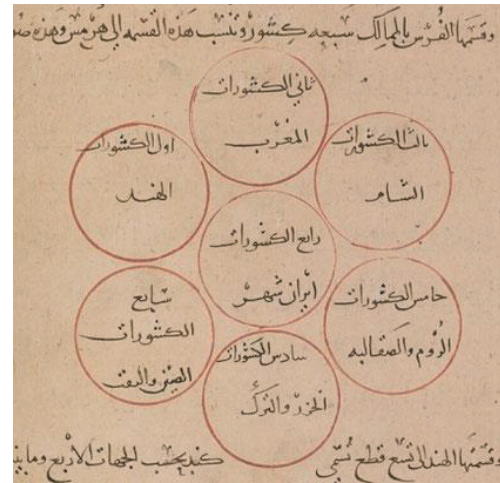 وقسمها الفُرس بالممالك سبعه كشور وتنسب هذه القسمه الى هرمس وهذه
ثاني الكشورات
المغرب
ثالث الكشورات
الشام
اول الكشورات
الهند
رابع الكشورات
ايران شهر
خامس الكشورات
الرُوم والصقالبه
سابع
الكشورات
الصين والتبت
سادس الكشورات
الخزر والترك
وقسمها الهند الى تسع قطع تُسمّى كند بحسب الجهات الاربع وما